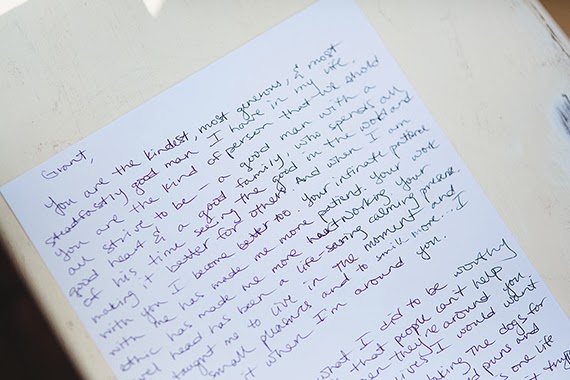 Grant,
You are the kindest, most generous, & most
steadfastly good man I have in my life.
You are the kind of person that we should
all strive to be - a good man with a
good heart & a good family, who spends all
of his time seeing the good in the world and
making it better for others. And when I am
with you I become better too. Your infinite patience
with me has made me more patient. Your work
ethic has made me more hardworking. Your
level head has been a life-saving calming presence
taught me to live in the moment and
small pleasures and to smile more... I
when I'm around you.
what I did to be worthy
that people can't help
when they're around you.
lives I would want
making the dogs for
puns and
one life